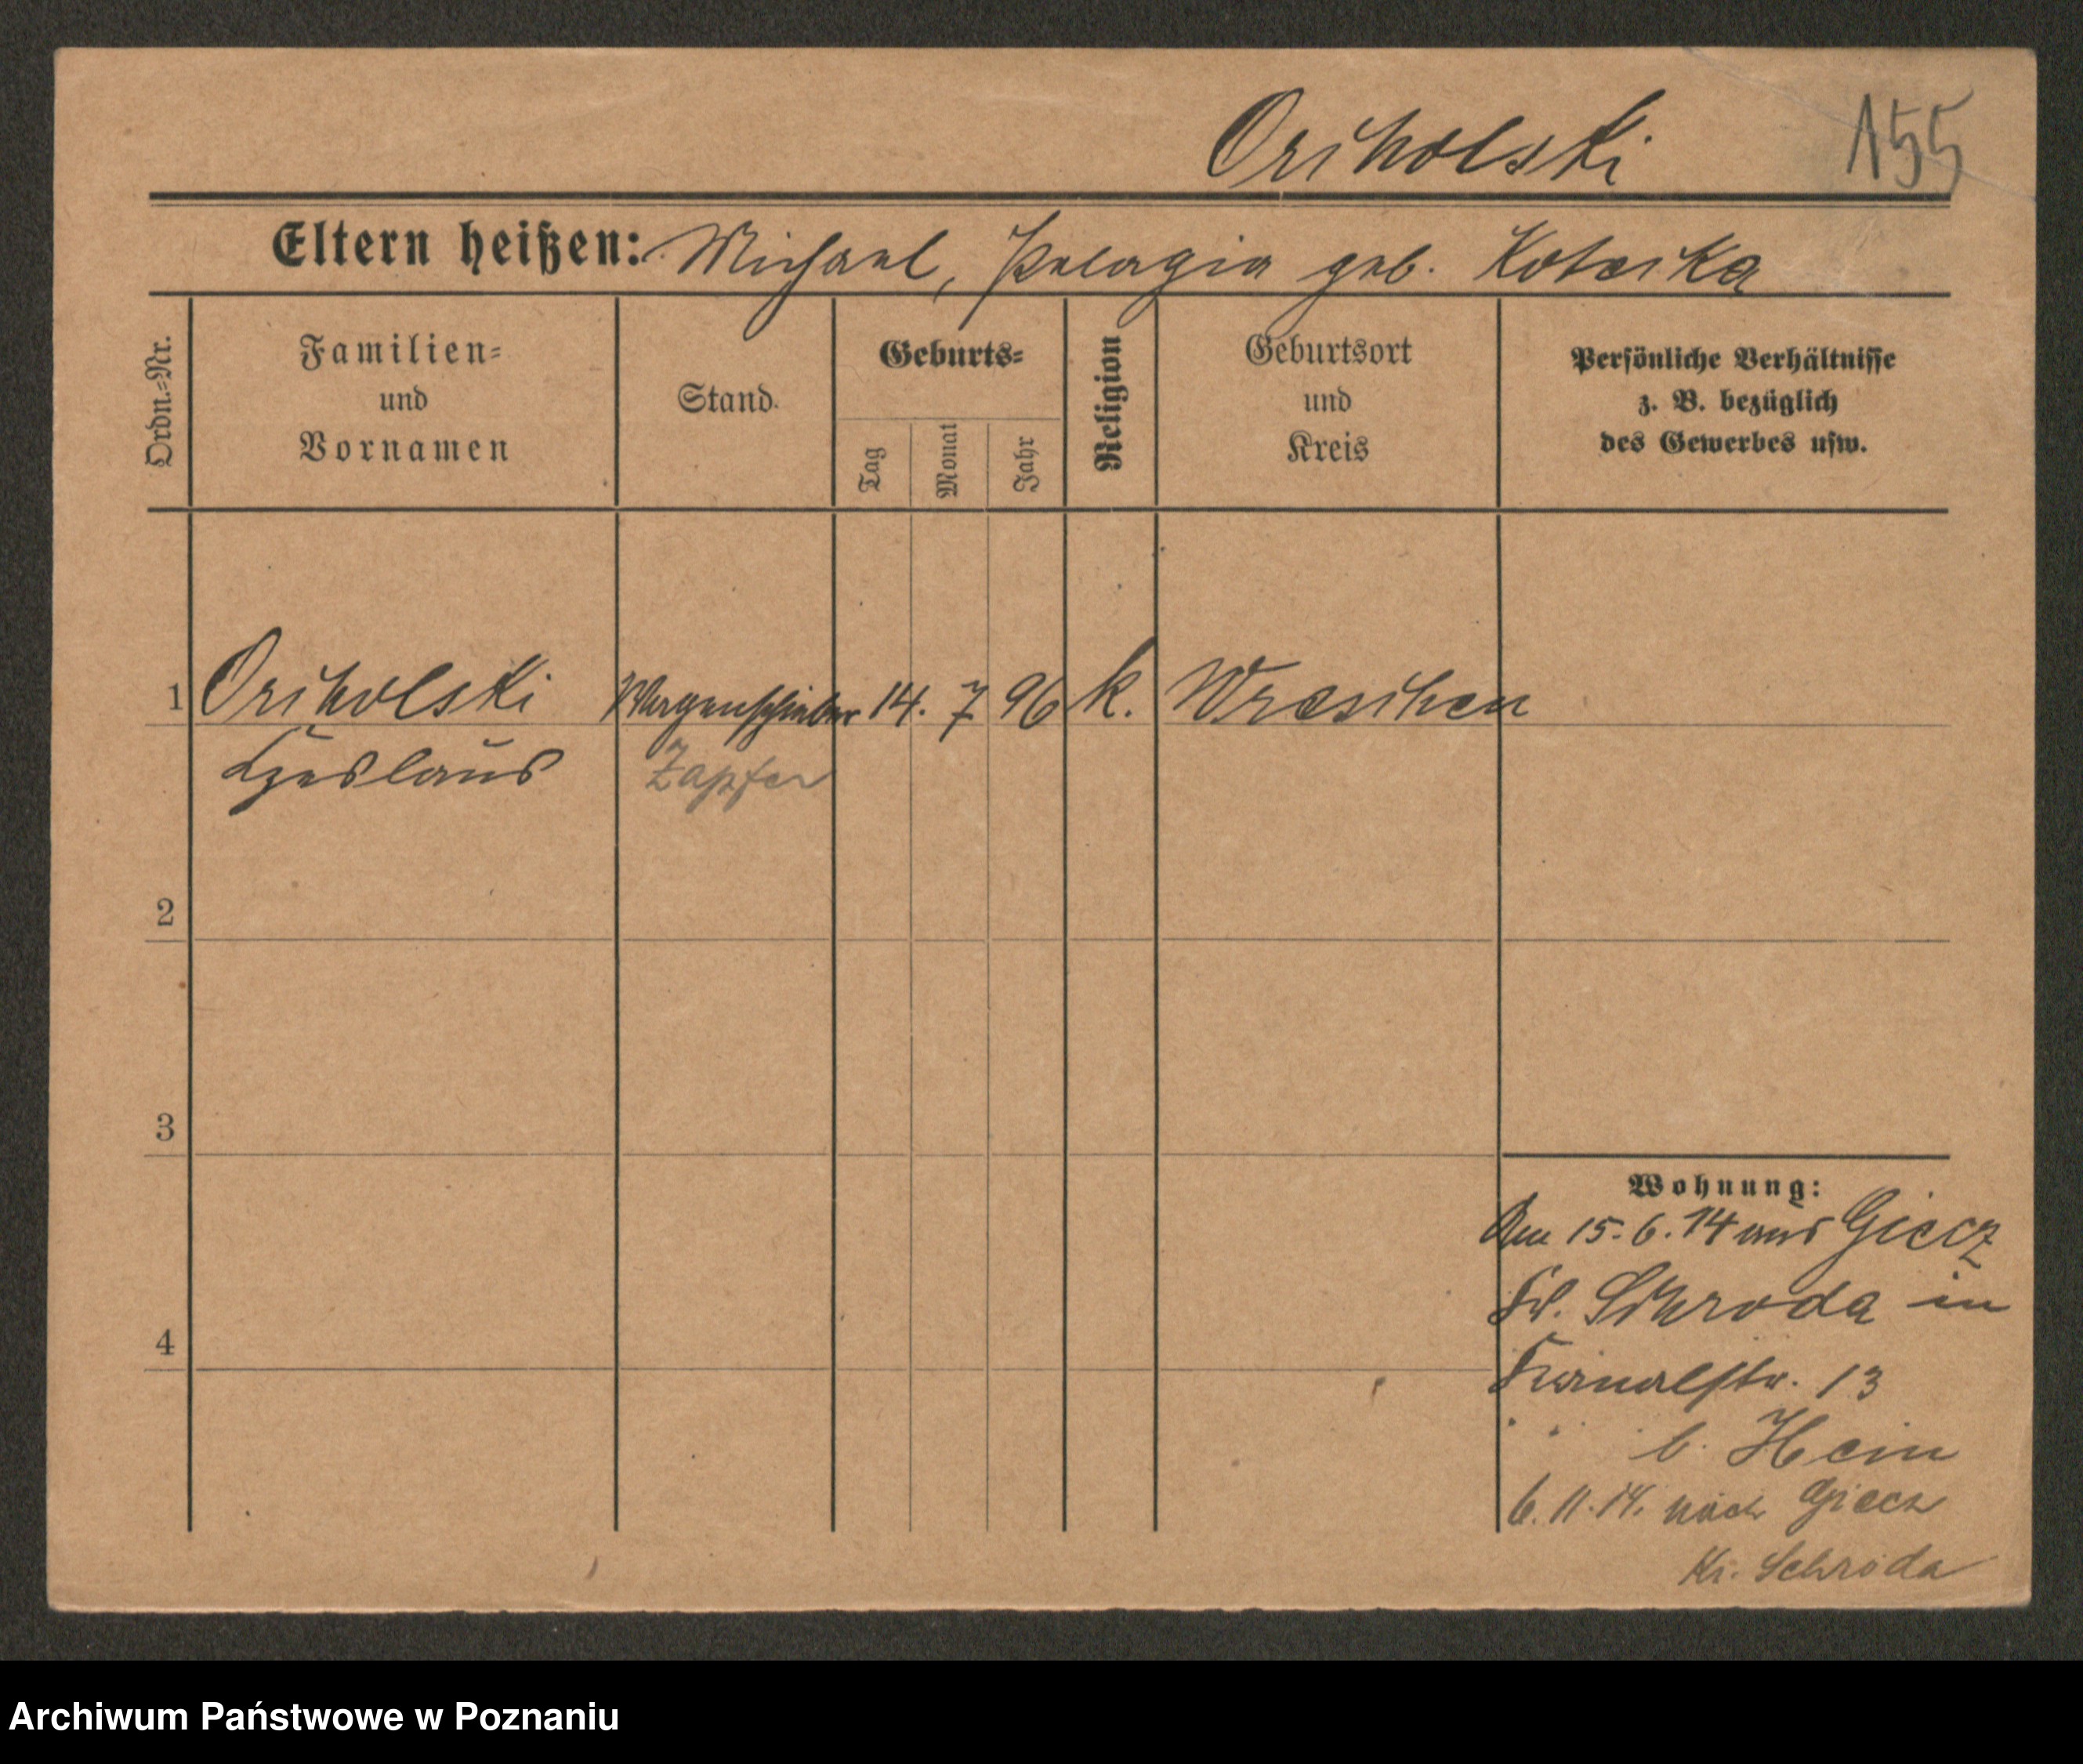 Orcholski
155
Eltern heißen: Michael, Pelagia geb. Koterka
Ordn.-Nr.
Familien-
und
Vornamen
Stand.
Geburts-
Tag
Monat
Jahr
Religion
Geburtsort
und
Kreis
Persönliche Verhältnisse
z. B. bezüglich
des Gewerbes usw.
1 Orcholski Wagenschieber 14. 7 96 k. Wreschen
Czeslaus Zapfer
2
3
4
Wohnung:
Am 15. 6. 14 aus Giecz
Kr. Schroda in
Kanalstr. 13
b. Hein
6. 11. 14. nach Giecz
Kr. Schroda
Archiwum Państwowe w Poznaniu